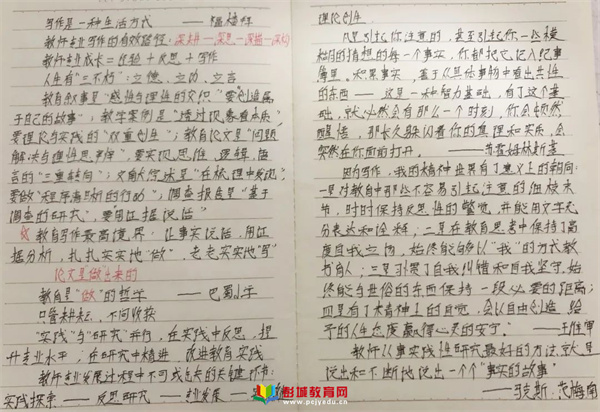 写作是一种生活方式 ——
教师专业写作的有效路径：深耕—深思—深描—
教师专业成长 = 经验 + 反思 + 写作
人生有“三不朽”：立德、立功、立言
教育叙事是“感性与理性的交织”要创造属
于自己的故事”；教学案例是“透过现象看本质”
要理论与实践的“双重创生”；教育论文是“问题
解决与理性思考”，要实现思维、逻辑、语
言的“三重转向”；文献综述是“在梳理中发现”，
要做“程序清晰的行动”；调查报告是“基于
调查的研究”，要用证据说话”
教育写作最高境界：让事实说话，用证
据分析，扎扎实实地“做”，老老实实地“写”
论文是做出来的
教育是“做”的哲学 —— 巴蜀小学
只管耕耘，不问收获
“实践”与“研究”并行，在实践中反思，提
升专业水平；在研究中精进，改进教育实践
教师专业发展过程中不可或缺的关键环节：
实践探索 —— 反思研究 —— 专业发展 ——
理论创生
凡是引起你注意的，甚至引起你一些模
糊的猜想的每一个事实，你都把它记入记事
簿里。积累事实，善于从具体事物中看出共性
的东西——这是一种智力基础，有了这个基
础，就必然会有那么一个时刻，你会顿然
醒悟，那长久躲闪着你的真理和实质，会
突然在你面前打开。 ——苏霍姆林斯基
因为写作，我的精神世界有了意义上的朝向：
一是对教育中那些不容易引起注意的细枝末
节，时时保持反思性的警觉，并能用文字充
分表达和诠释；二是在教育思考中保持了高
度自我立场，始终能够以“我”的方式教
书育人；三是引爆了自我纠错和自我坚守，始
终能与世俗的东西保持一段必要的距离；
四是有了术精神上的自觉，会以自由创造给
予的人生态度赢得心灵的安宁。 ——王维审
教师从事实践性研究最好的方法，就是
说出和不断地说出一个个“事实的故事”
——马克斯·范梅南
彭城教育网
www.pcjyedu.cn